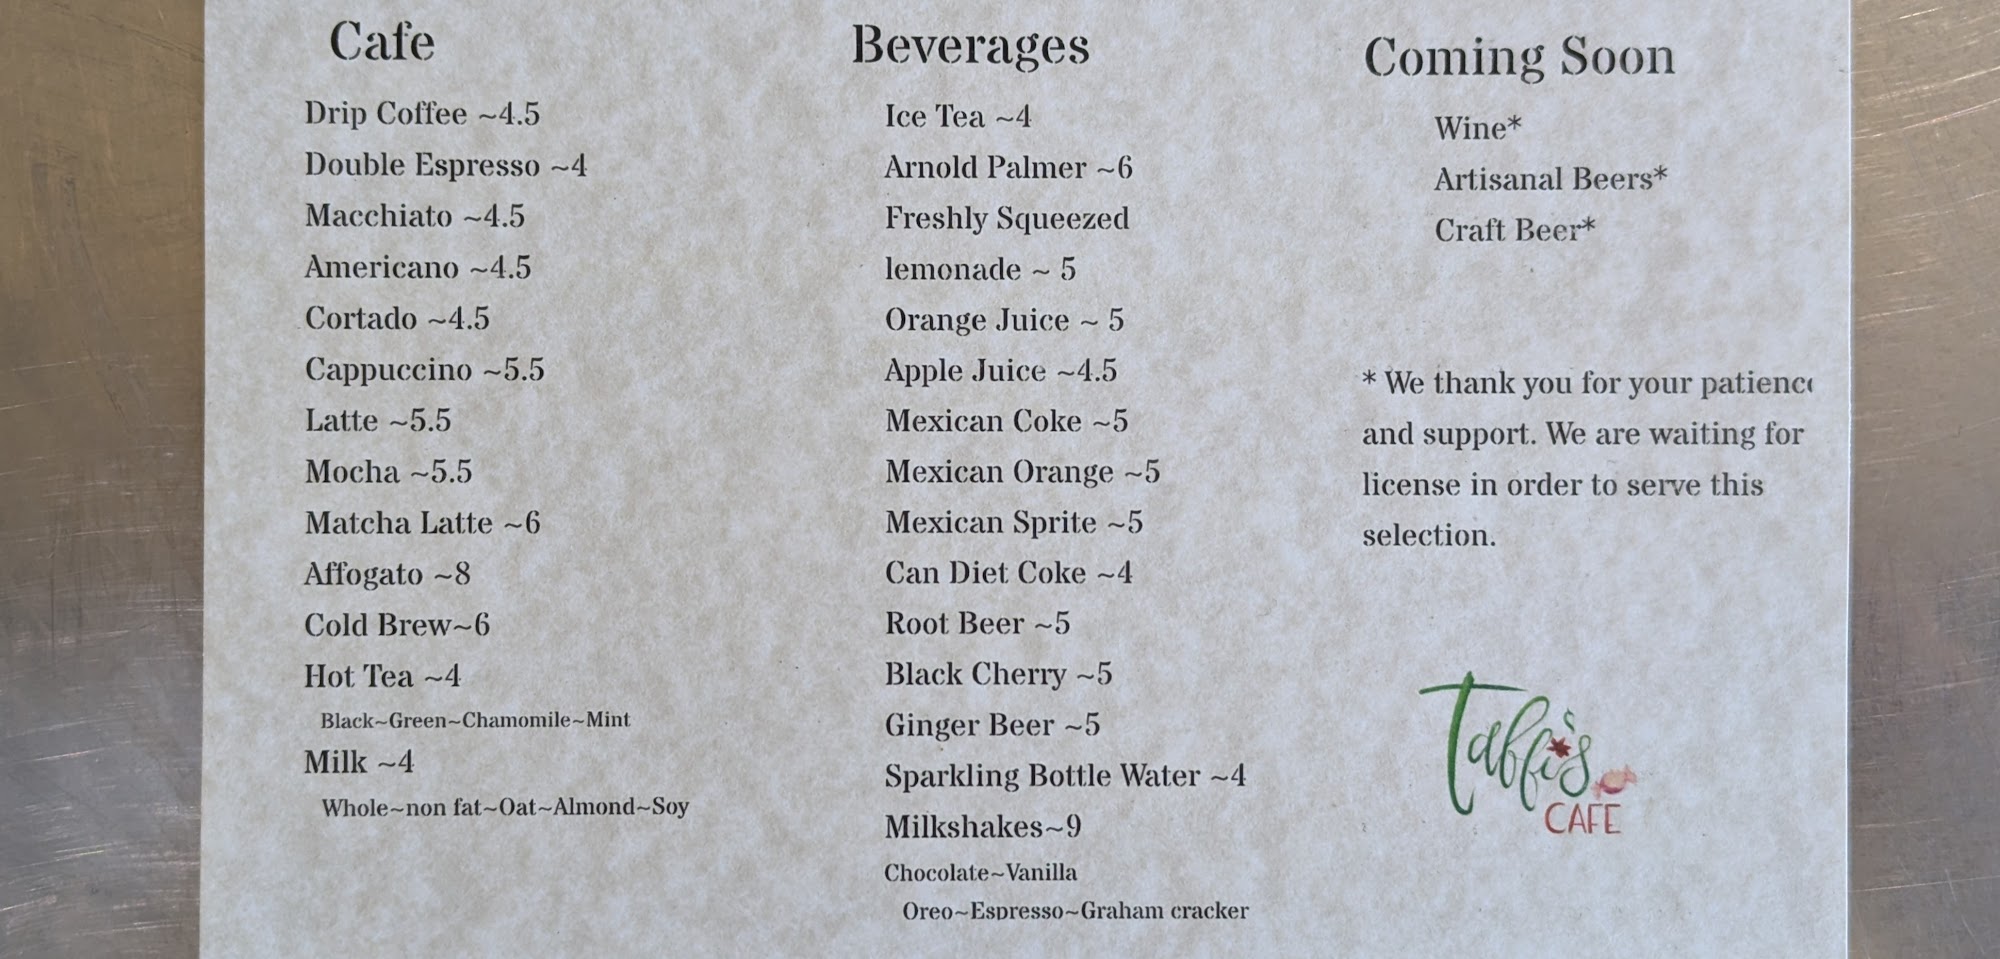 Cafe
Drip Coffee ~4.5
Double Espresso ~4
Macchiato ~4.5
Americano ~4.5
Cortado ~4.5
Cappuccino ~5.5
Latte ~5.5
Mocha ~5.5
Matcha Latte ~6
Affogato ~8
Cold Brew~6
Hot Tea ~4
Black~Green~Chamomile~Mint
Milk ~4
Whole~non fat~Oat~Almond~Soy
Beverages
Ice Tea ~4
Arnold Palmer ~6
Freshly Squeezed
lemonade ~ 5
Orange Juice ~ 5
Apple Juice ~4.5
Mexican Coke ~5
Mexican Orange ~5
Mexican Sprite ~5
Can Diet Coke ~4
Root Beer ~5
Black Cherry ~5
Ginger Beer ~5
Sparkling Bottle Water ~4
Milkshakes~9
Chocolate~Vanilla
Oreo~Espresso~Graham cracker
Coming Soon
Wine*
Artisanal Beers*
Craft Beer*
* We thank you for your patience
and support. We are waiting for
license in order to serve this
selection.
Taffi's
CAFE